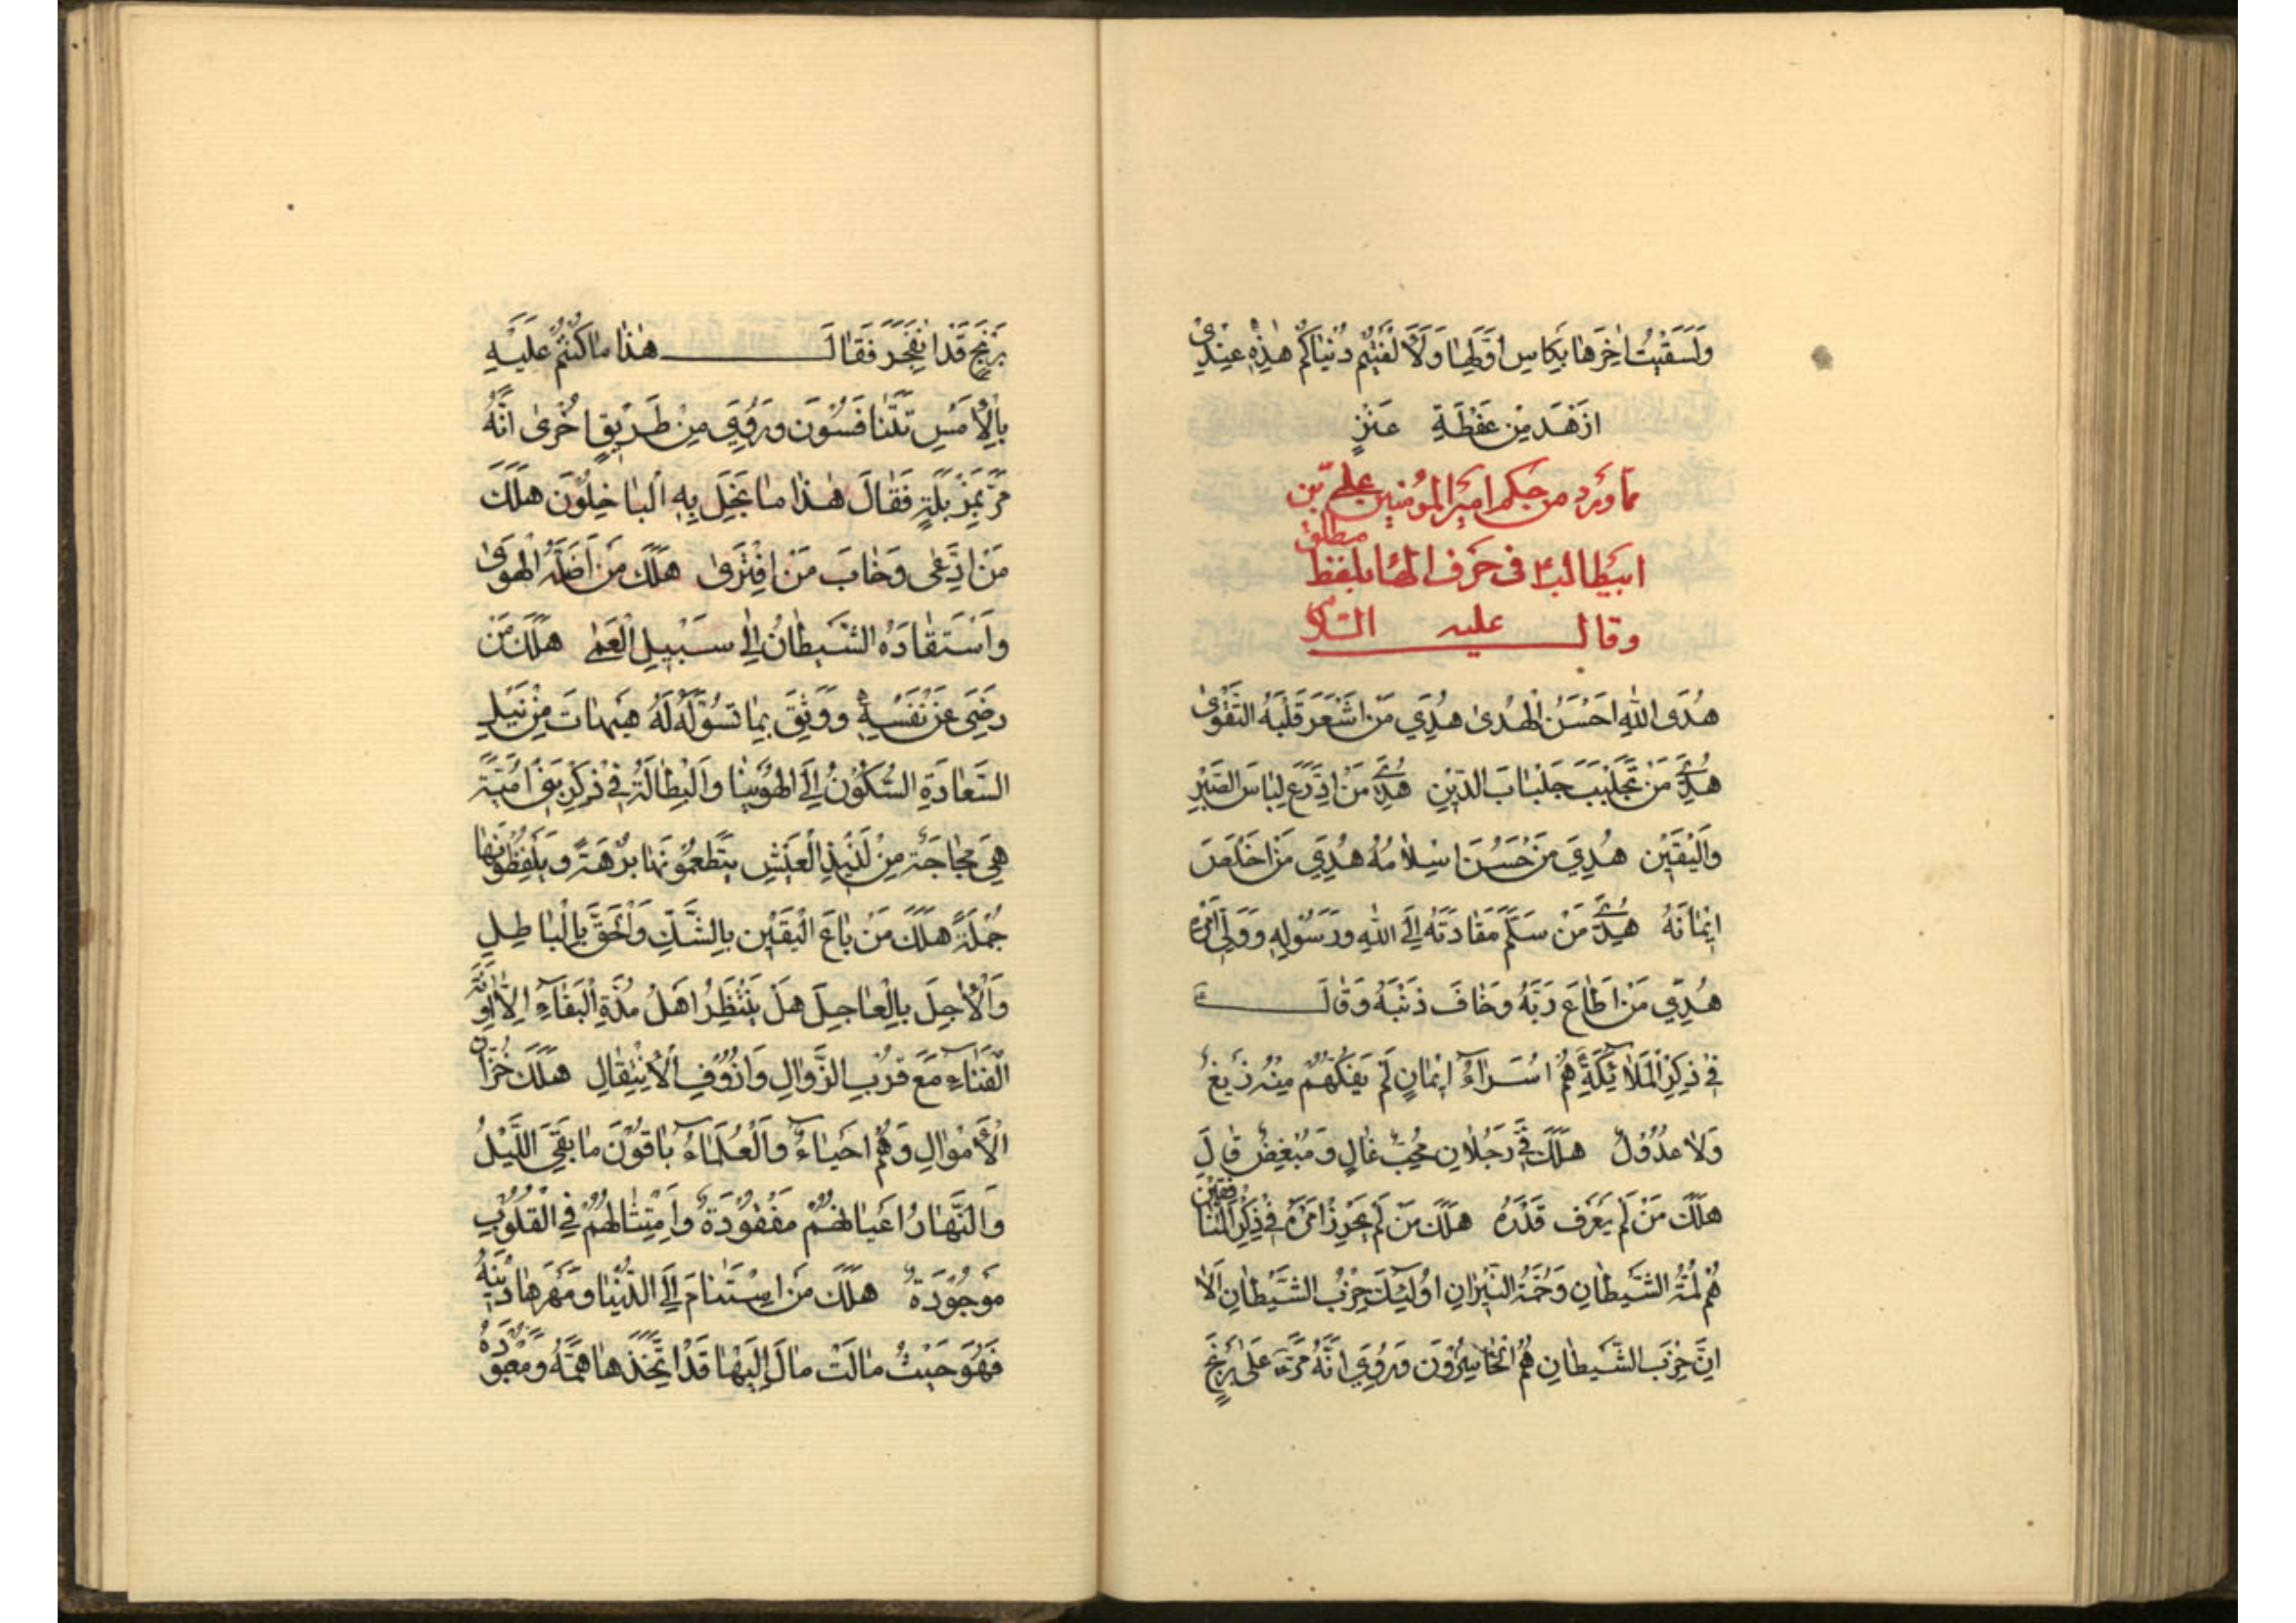 وَلَسَقَيْتُ اٰخِرَهٰا بِكَاْسِ اَوَّلِهٰا وَلَاَلْفَيْتُمْ دُنْيٰاكُمْ هٰذِهٖ عِنْدِىْ
اَزْهَدَ مِنْ عَفْطَةِ عَنْزٍ
مما ورد من حكم امير المؤمنين علي بن
ابيطالب ع في حرف الهاء بلفظ مطلق
وقال عليه السلام
هُدَى اللهِ اَحْسَنُ الْهُدىٰ هُدِيَ مَنْ اَشْعَرَ قَلْبَهُ التَّقْوىٰ
هُدِيَ مَنْ تَجَلْبَبَ جَلْبٰابَ الدّٖينِ هُدِيَ مَنْ اِدَّرَعَ لِبٰاسَ الصَّبْرِ
وَالْيَقٖينِ هُدِيَ مَنْ حَسُنَ اِسْلٰامُهُ هُدِيَ مَنْ اَخْلَصَ
اٖيْمٰانَهُ هُدِيَ مَنْ سَلَّمَ مَقٰادَتَهُ اِلَى اللهِ وَرَسُوْلِهٖ وَوَلِيِّ اَمْرِهٖ
هُدِيَ مَنْ اَطٰاعَ رَبَّهُ وَخٰافَ ذَنْبَهُ وَقٰالَ ع
فٖي ذِكْرِ الْمَلٰائِكَةِ هُمْ اُسَرٰاءُ اٖيْمٰانٍ لَمْ يَفُكَّهُمْ مِنْهُ زَيْغٌ
وَلٰا عُدُوْلٌ هَلَكَ فِيَّ رَجُلٰانِ مُحِبٌّ غٰالٍ وَمُبْغِضٌ قٰالٍ
هَلَكَ مَنْ لَمْ يَعْرِفْ قَدْرَهُ هَلَكَ مَنْ لَمْ يُحْرِزْ اَمْرَهُ فٖي ذِكْرِ الْمُنٰافِقٖينَ
هُمْ لُمَّةُ الشَّيْطٰانِ وَحُمَّةُ النّٖيْرٰانِ اُولٰئِكَ حِزْبُ الشَّيْطٰانِ اَلٰا
اِنَّ حِزْبَ الشَّيْطٰانِ هُمُ الْخٰاسِرُوْنَ وَرُوِيَ اَنَّهُ مَرَّ ع عَلىٰ بَرْبَخٍ
بَرْبَخٍ قَدْ اِنْفَجَرَ فَقٰالَ هٰذٰا مٰا كُنْتُمْ عَلَيْهِ
بِالْاَمْسِ تَتَنٰافَسُوْنَ وَرُوِيَ مِنْ طَرٖيْقٍ اُخْرىٰ اَنَّهُ
مَرَّ بِمَزْبَلَةٍ فَقٰالَ هٰذٰا مٰا بَخِلَ بِهِ الْبٰاخِلُوْنَ هَلَكَ
مَنْ اِدَّعىٰ وَخٰابَ مَنْ اِفْتَرىٰ هَلَكَ مَنْ اَضَلَّهُ الْهَوىٰ
وَاسْتَقٰادَهُ الشَّيْطٰانُ اِلىٰ سَبٖيْلِ الْعَمىٰ هَلَكَ مَنْ
رَضِيَ عَنْ نَفْسِهٖ وَوَثِقَ بِمٰا تُسَوِّلُهُ لَهُ هَيْهٰاتَ مِنْ نَيْلِ
السَّعٰادَةِ السُّكُوْنُ اِلَى الْهُوَيْنٰا وَالْبِطٰالَةُ فٖي ذِكْرِ بَنٖي اُمَيَّةَ
هِيَ مُجٰاجَةٌ مِنْ لَذٖيْذِ الْعَيْشِ يَتَطَعَّمُوْنَهٰا بُرْهَةً وَيَلْفِظُوْنَهٰا
جُمْلَةً هَلَكَ مَنْ بٰاعَ الْيَقٖيْنَ بِالشَّكِّ وَالْحَقَّ بِالْبٰاطِلِ
وَالْاٰجِلَ بِالْعٰاجِلِ هَلْ يَنْتَظِرُ اَهْلُ مُدَّةِ الْبَقٰاءِ اِلّٰا اٰوِنَةَ
الْفَنٰاءِ مَعَ قُرْبِ الزَّوٰالِ وَاُزُوْفِ الْاِنْتِقٰالِ هَلَكَ خُزّٰانُ
الْاَمْوٰالِ وَهُمْ اَحْيٰاءٌ وَالْعُلَمٰاءُ بٰاقُوْنَ مٰا بَقِيَ اللَّيْلُ
وَالنَّهٰارُ اَعْيٰانُهُمْ مَفْقُوْدَةٌ وَاَمْثٰالُهُمْ فِي الْقُلُوْبِ
مَوْجُوْدَةٌ هَلَكَ مَنْ اِسْتَنٰامَ اِلَى الدُّنْيٰا وَمَهَرَهٰا دٖيْنَهُ
فَهُوَ حَيْثُ مٰالَتْ مٰالَ اِلَيْهٰا قَدْ اِتَّخَذَهٰا هَمَّهُ وَمَعْبُوْدَهُ